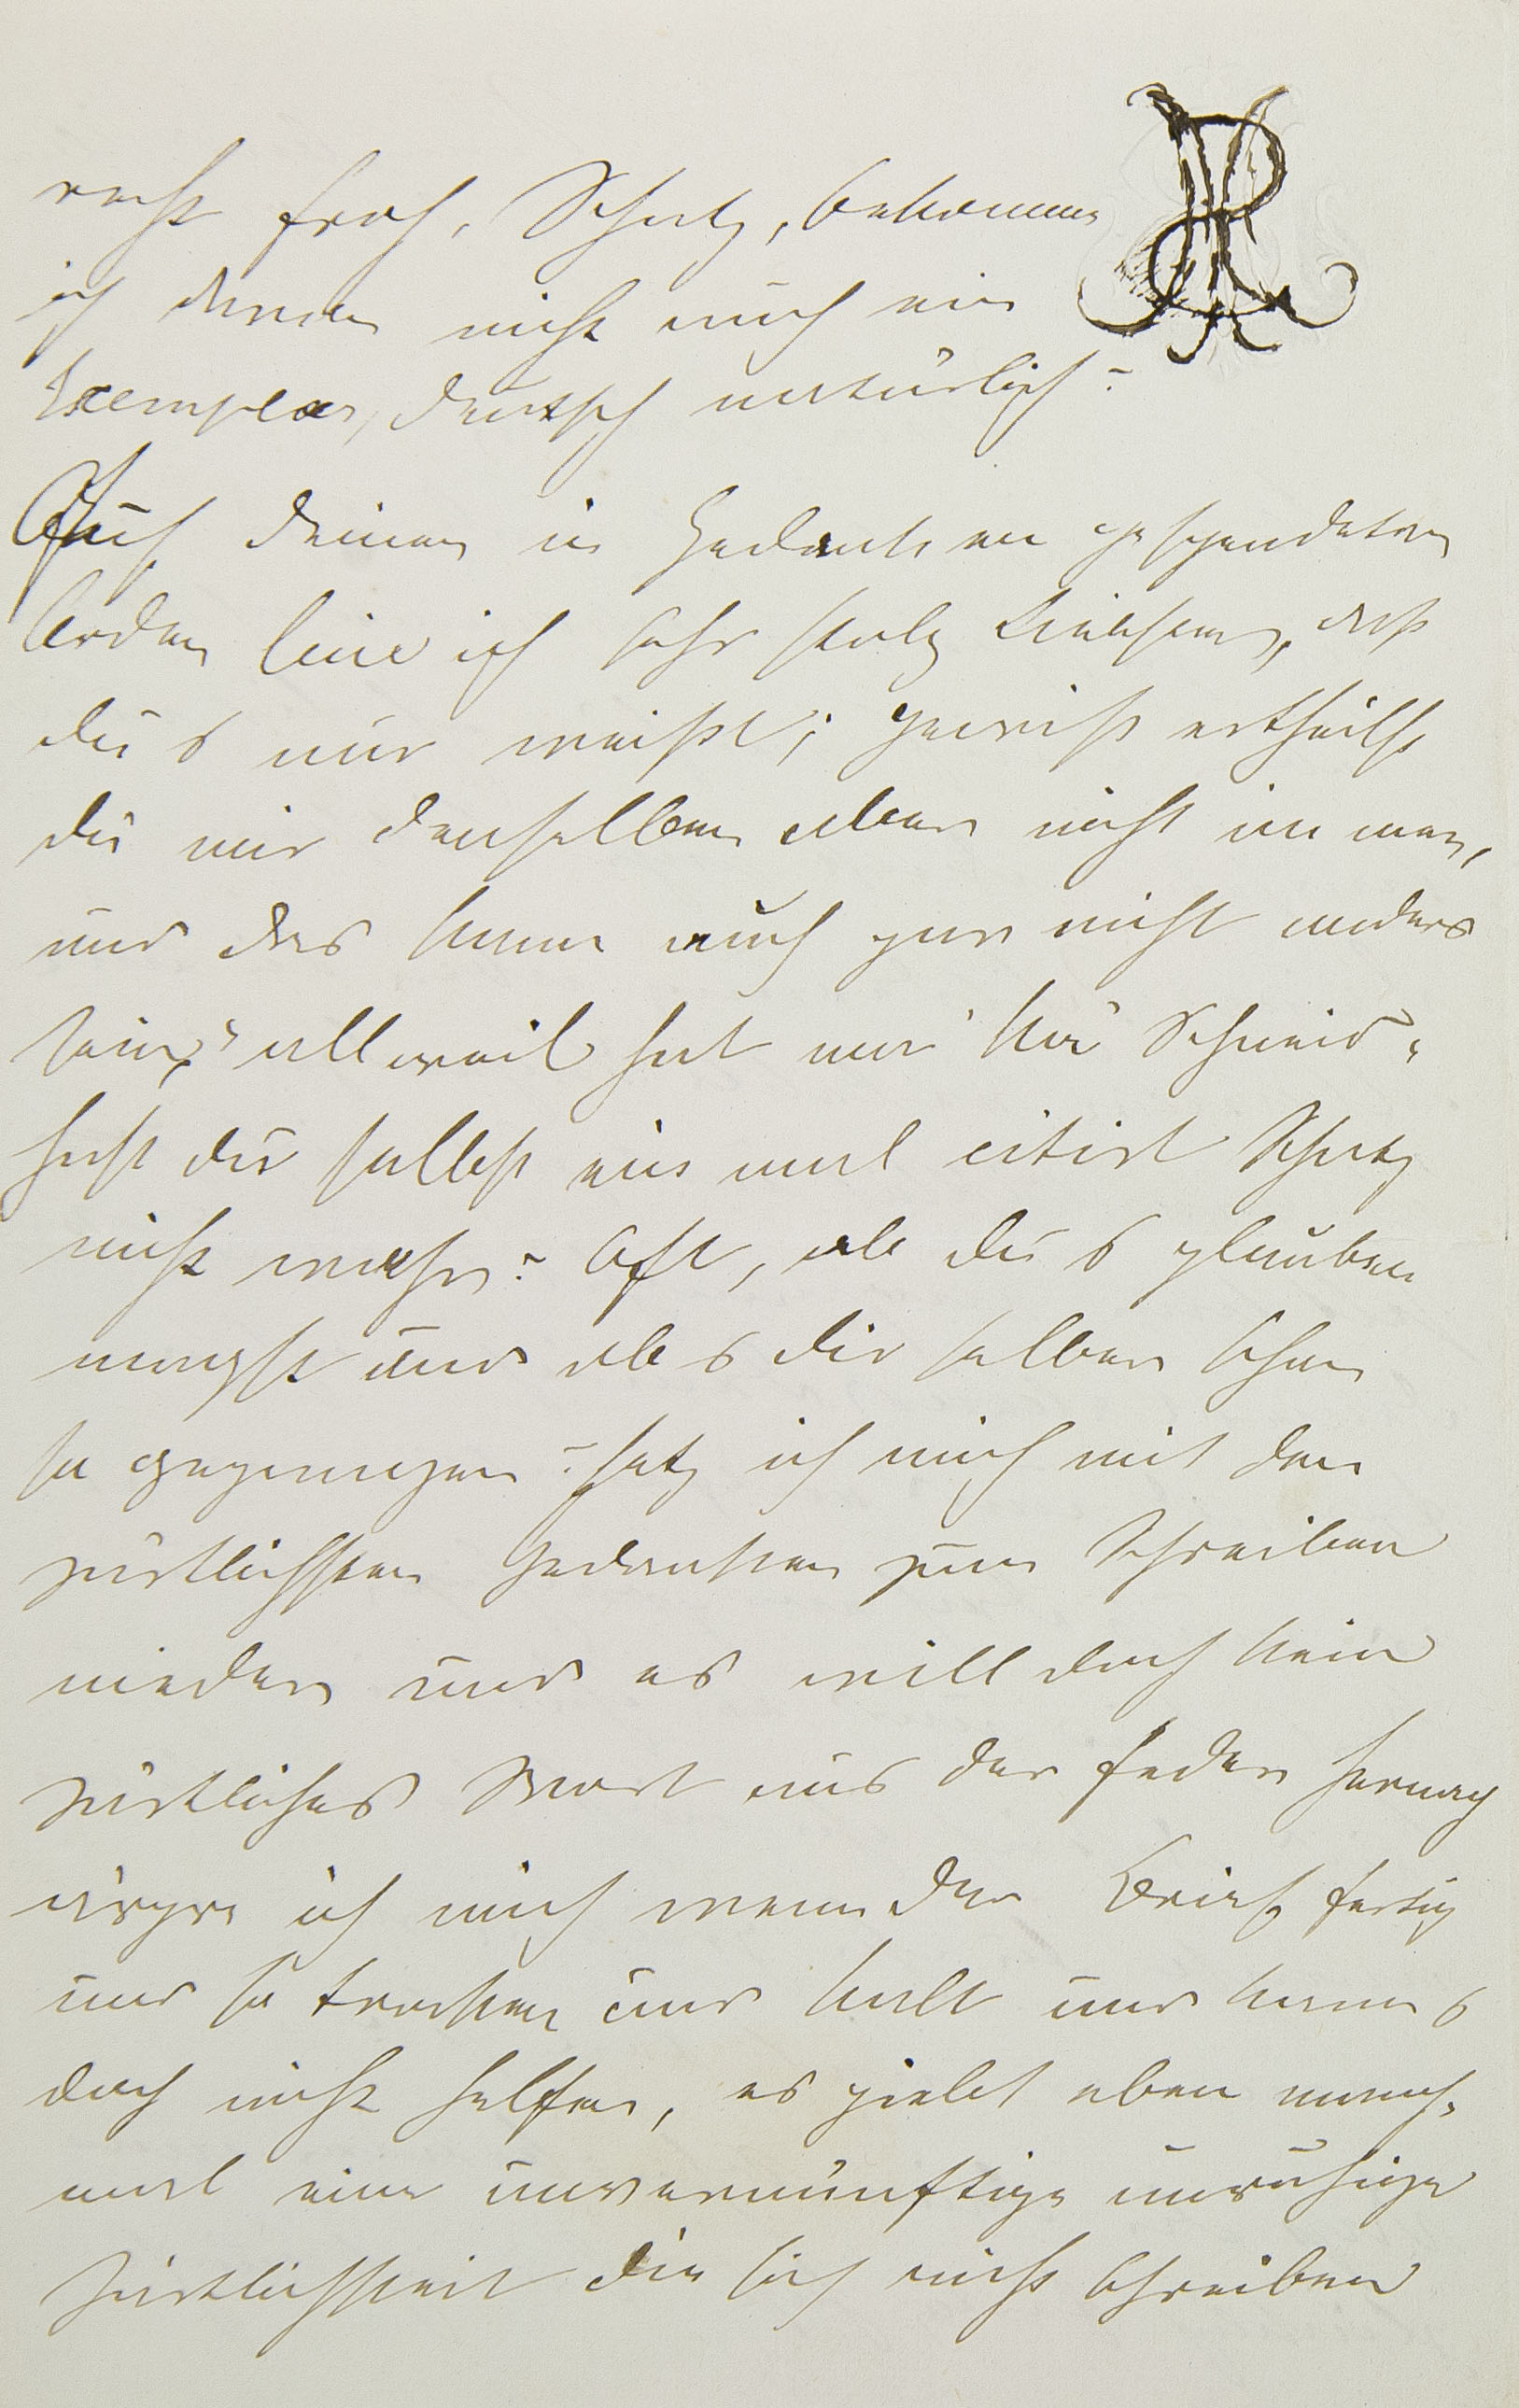 recht froh, Schatz, bekomme
ich denn nicht auch ein
Exemplar, deutsch natürlich?
Auf deinen in Gedanken gespendeten
Orden bin ich sehr stolz Liebster, daß
du's nur weißt; gewiß ertheilst
du mir denselben aber nicht immer,
und das kann auch gar nicht anders
sein, "allweil hat mer ka Schneid"
hast du selbst ein mal citirt Schatz
nicht wahr? Oft, ob du's glauben
magst und ob's dir selber schon
so gegangen? setz ich mich mit den
zärtlichsten Gedanken zum Schreiben
nieder und es will doch kein
zärtliches Wort aus der Feder hernach
ärgre ich mich wenn der Brief fertig
und so trocken und kalt und kann's
doch nicht helfen, es giebt eben manch-
mal eine unvernünftige unruhige
Zärtlichkeit die sich nicht schreiben